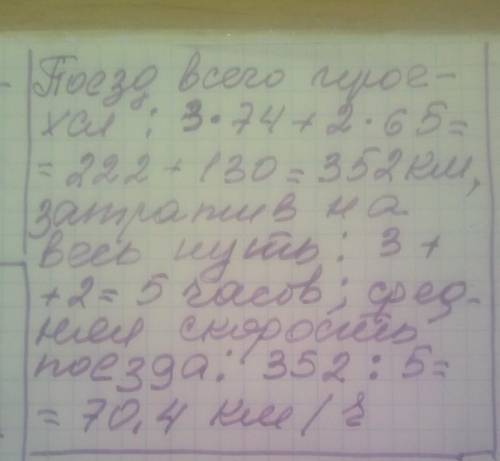 Поезд всего прое-
хал: 3·74+2·65=
=222+130=352км,
затратив на
весь путь: 3+
+2=5 часов; сред-
няя скорость
поезда: 352:5=
=70,4 км/ч